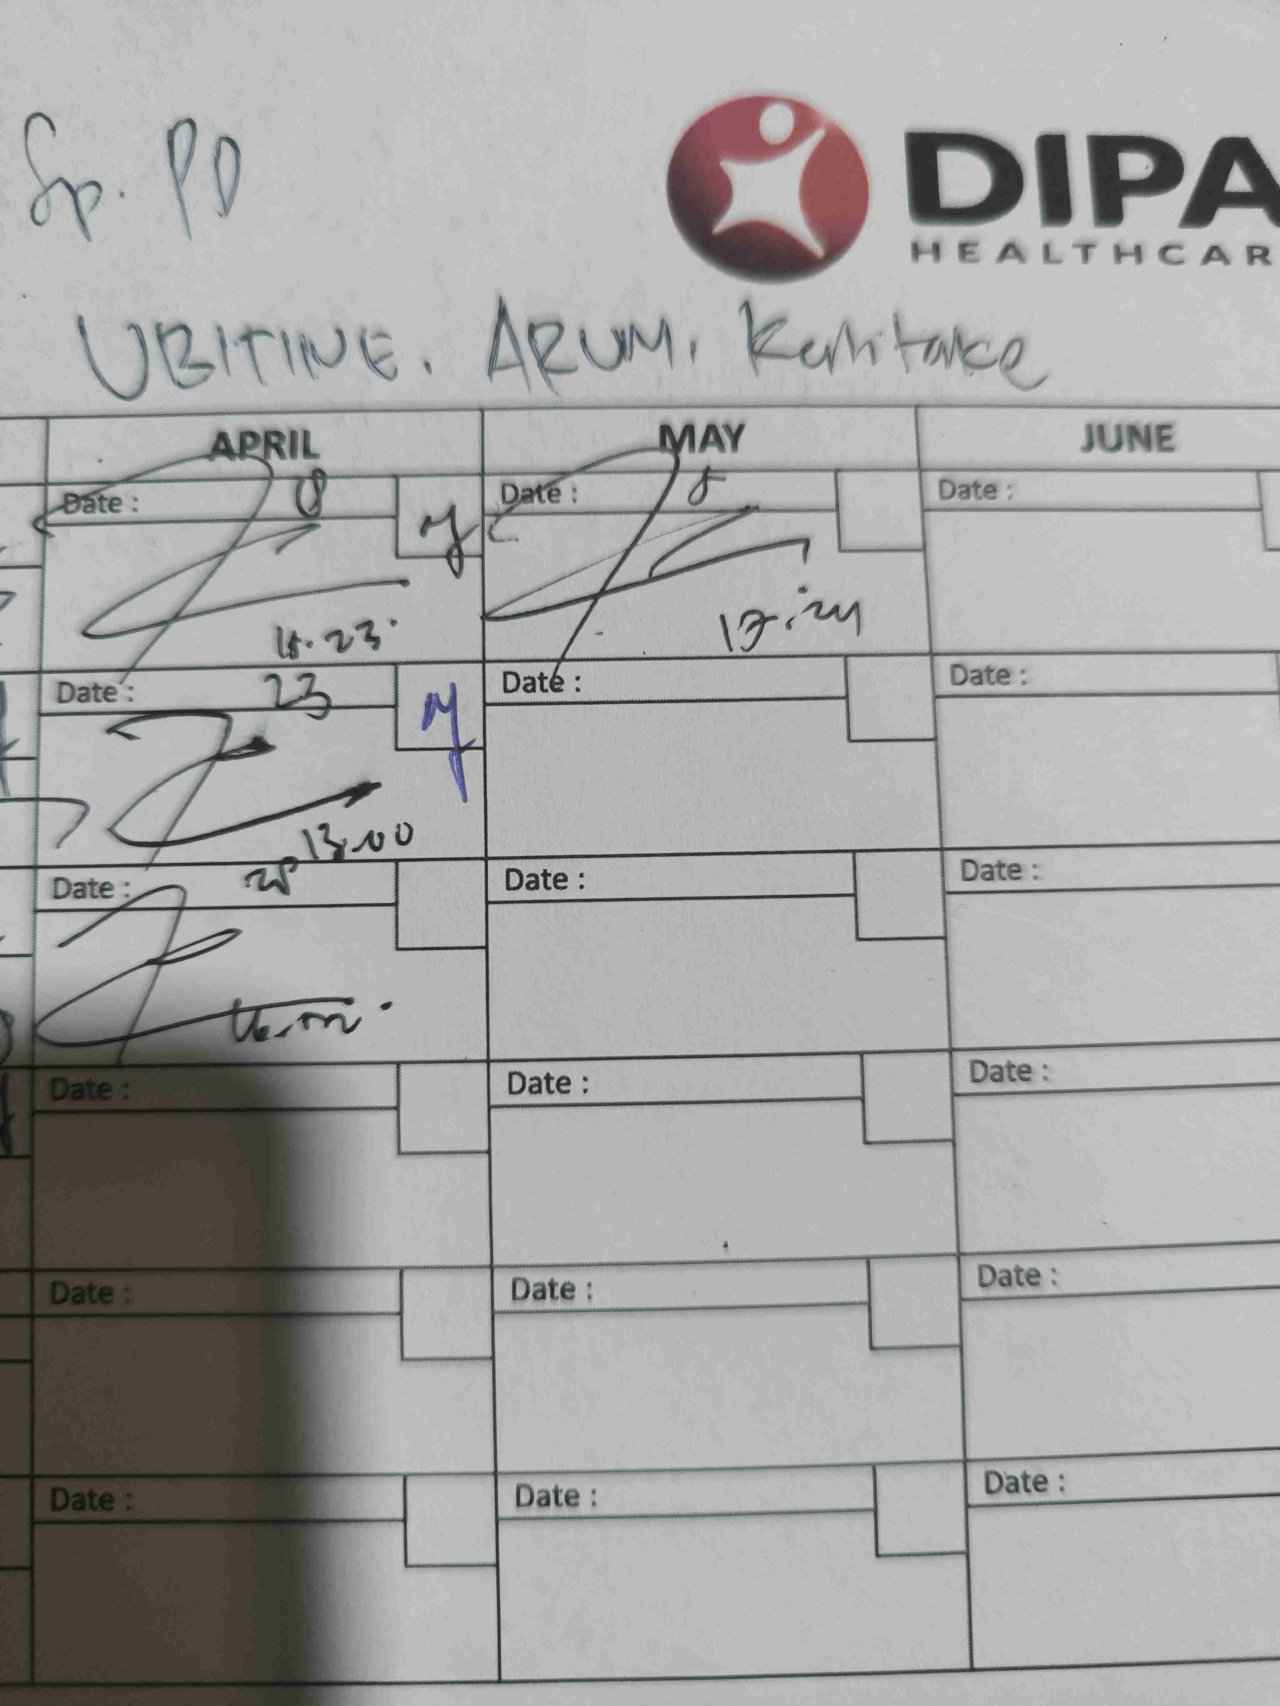 Sp. PD
DIPA
HEALTHCAR
UBITINE. ARUM.
APRIL MAY JUNE
Date : 8 Date : 8 Date :
Date : 23 Date : Date :
13.00
Date : 28 Date : Date :
Date : Date : Date :
Date : Date : Date :
Date : Date : Date :